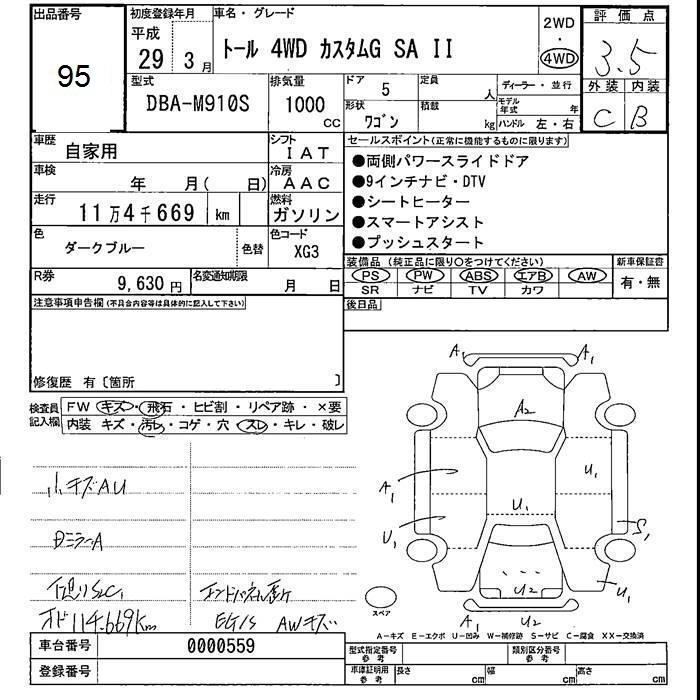 出品番号
95
初度登録年月
平成
29 3月
車名・グレード
トール 4WD カスタムG SA II
2WD
・
4WD
評価点
3.5
外装 内装
C B
型式
DBA-M910S
排気量
1000
CC
ドア
5
定員
人
形状
ワゴン
積載
kg
ディーラー・並行
モデル年式
年
ハンドル 左・右
車歴
自家用
シフト
IAT
車検
年 月( 日)
冷房
AAC
走行
11万4千669 km
燃料
ガソリン
色
ダークブルー
色替
色コード
XG3
R券
9,630円
名変通知期限
月 日
セールスポイント(正常に機能するものに限ります)
●両側パワースライドドア
●9インチナビ・DTV
●シートヒーター
●スマートアシスト
●プッシュスタート
装備品(純正品に限り○をつけてください)
新車保証書
PS PW ABS エアB AW
SR ナビ TV カワ
有・無
後日品
注意事項申告欄(不具合内容等は具体的に記入して下さい)
修復歴 有〔箇所 〕
検査員
記入欄
FW キズ・飛石・ヒビ割・リペア跡・×要
内装 キズ・汚レ・コゲ・穴・スレ・キレ・破レ
小キズAU
DミラーA
下廻りSC1
オド114.669km
EG/S AWキズ
A1 A1
A2
A1
U1
U1
U1
S1
U2
U1
A1 U2 A1
スペア
A―キズ E―エクボ U―凹み W―補修跡 S―サビ C―腐食 XX―交換済
車台番号
0000559
登録番号
型式指定番号
参考
類別区分番号
参考
車庫証明用
参考
長さ cm
幅 cm
高さ cm